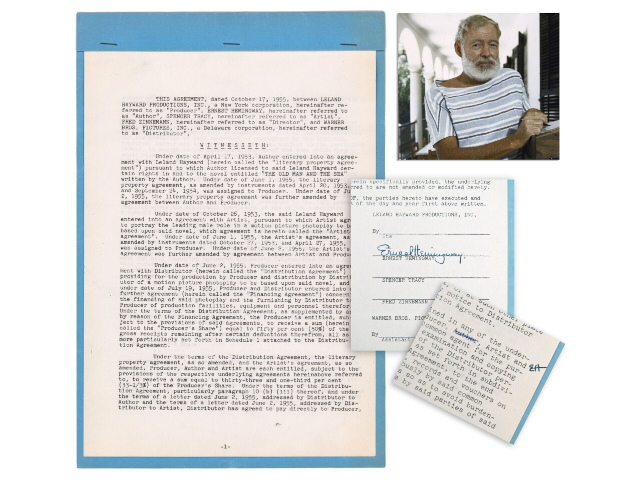 THIS AGREEMENT, dated October 17, 1955, between LELAND
HAYWARD PRODUCTIONS, INC., a New York corporation, hereinafter re-
ferred to as "Producer", ERNEST HEMINGWAY, hereinafter referred to
as "Author", SPENCER TRACY, hereinafter referred to as "Artist",
FRED ZINNEMANN, hereinafter referred to as "Director", and WARNER
BROS. PICTURES, INC., a Delaware corporation, hereinafter referred
to as "Distributor".
W I T N E S S E T H :
Under date of April 17, 1953, Author entered into an agree-
ment with Leland Hayward (herein called the "literary property agree-
ment") pursuant to which Author licensed to said Leland Hayward cer-
tain rights in and to the novel entitled "THE OLD MAN AND THE SEA"
written by the Author. Under date of June 1, 1955, the literary
property agreement, as amended by instruments dated April 20, 1953,
and September 24, 1954, was assigned to Producer. Under date of Ju
2, 1955, the literary property agreement was further amended by
agreement between Author and Producer.
Under date of October 26, 1953, the said Leland Hayward
entered into an agreement with Artist, pursuant to which Artist agr
to portray the leading male role in a motion picture photoplay to b
based upon said novel, which agreement is herein called the "Artist
agreement". Under date of June 1, 1955, the Artist's agreement, as
amended by instruments dated October 27, 1953, and April 27, 1955,
was assigned to Producer. Under date of June 2, 1955, the Artist's
agreement was further amended by agreement between Artist and Produ
Under date of June 2, 1955, Producer entered into an agree
ment with Distributor (herein called the "Distribution Agreement")
providing for the production by Producer and distribution by Distri
utor of a motion picture photoplay to be based upon said novel, and
under date of July 19, 1955, Producer and Distributor entered into
further agreement (herein called the "Financing Agreement") concern
the financing of said photoplay and the furnishing by Distributor t
Producer of production facilities, equipment and personnel therefor
Under the terms of the Distribution Agreement, as supplemented by
by reason of the Financing Agreement, the Producer is entitled, sub
ject to the provisions of said agreements, to receive a sum (herein
called the "Producer's Share") equal to fifty per cent (50%) of the
gross receipts remaining after certain deductions therefrom, all as
more particularly set forth in Schedule 1 attached to the Distribu-
tion Agreement.
Under the terms of the Distribution Agreement, the literary
property agreement, as so amended, and the Artist's agreement, as so
amended, Producer, Author and Artist are each entitled, subject to the
provisions of the respective underlying agreements hereinabove referred
to, to receive a sum equal to thirty-three and one-third per cent
(33-1/3%) of the Producer's Share. Under the terms of the Distribu-
tion Agreement, particularly paragraph 10 (b) (iii) thereof, and under
the terms of a letter dated June 2, 1955, addressed by Distributor to
Author and the terms of a letter dated June 2, 1955, addressed by Dis-
tributor to Artist, Distributor has agreed to pay directly to Producer,
-1-
rein specifically provided, the underlying
rred to are not amended or modified hereby.
OF, the parties hereto have executed and
of the day and year first above written.
LELAND HAYWARD PRODUCTIONS, INC.
By
Its
Ernest Hemingway
ERNEST HEMINGWAY
SPENCER TRACY
FRED ZINNEMANN
WARNER BROS. PICTURES, INC.
By
Assistant
Agreement to Distributor
ned in any of the under-
Artist and
common agent for the pur-
EH
examination and copying
Distributor per-
as set forth in subdivi-
ords and vouchers on
usly by said common
so as to avoid burden-
by said parties of said